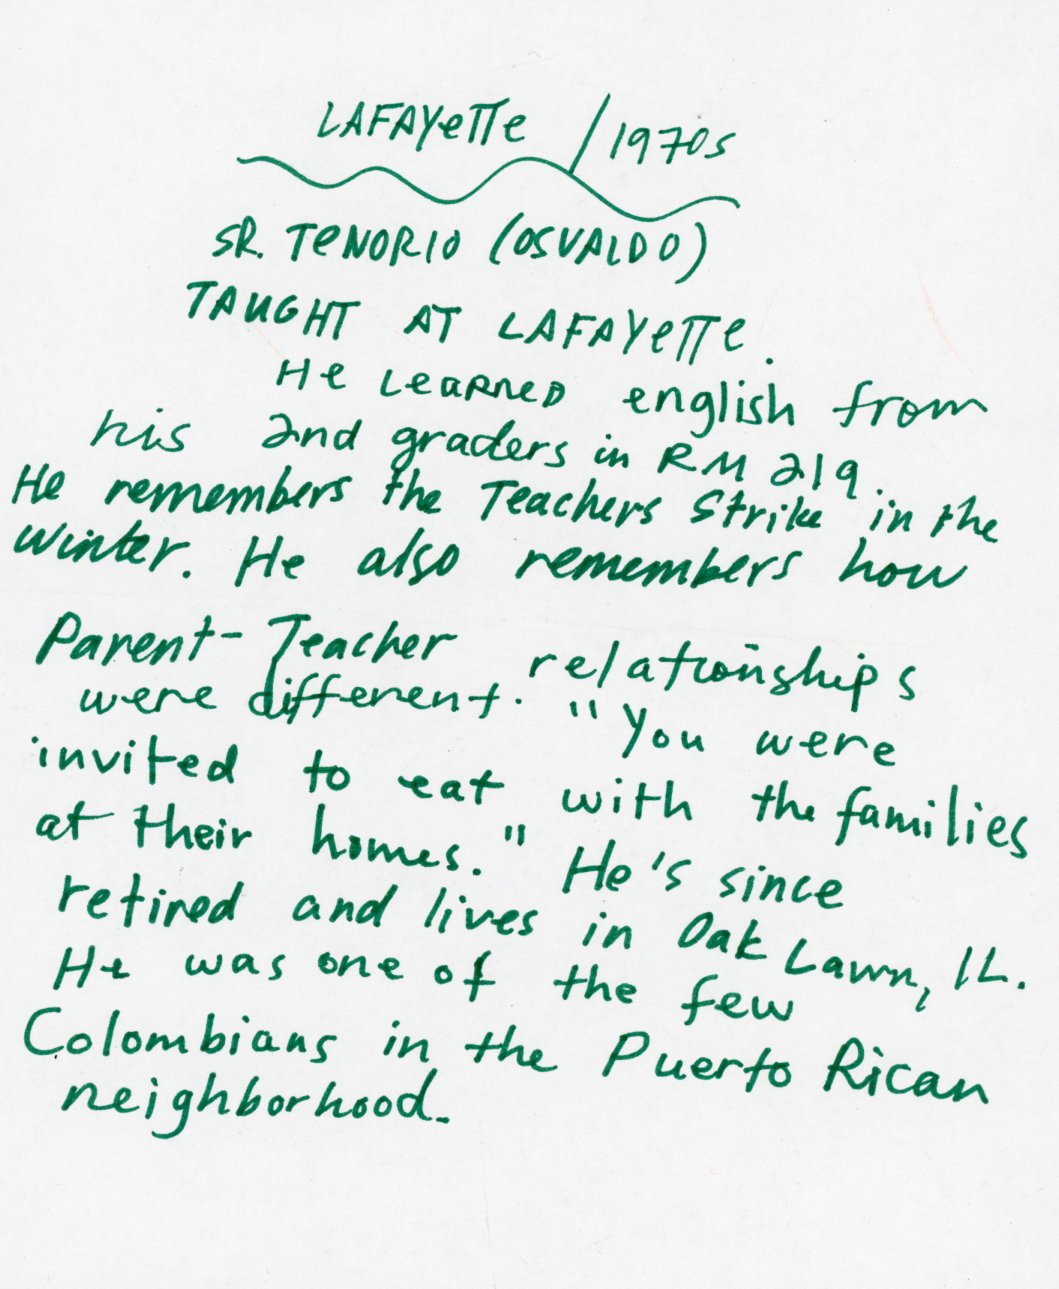 LAFAYeTTe / 1970s
SR. TeNORIO (OSVALDO)
TAUGHT AT LAFAYeTTe.
He LeARNeD english from
his 2nd graders in RM 219.
He remembers the Teachers Strike in the
winter. He also remembers how
Parent-Teacher relationships
were different. "You were
invited to eat with the families
at their homes." He's since
retired and lives in Oak Lawn, IL.
He was one of the few
Colombians in the Puerto Rican
neighborhood.